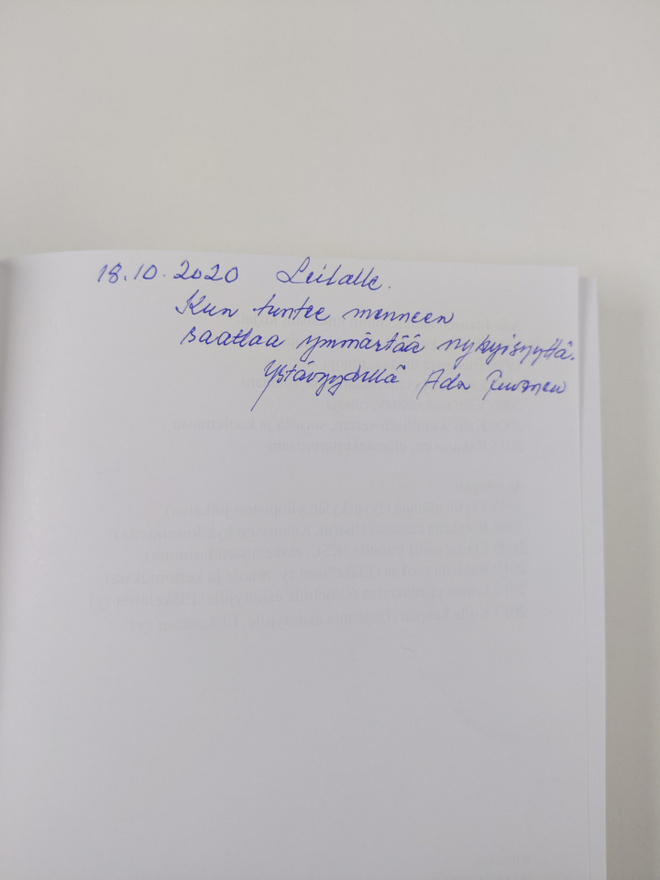 18.10.2020 Leilalle.
Kun tuntee menneen
saattaa ymmärtää nykyisyyttä.
Ystävyydellä Ada